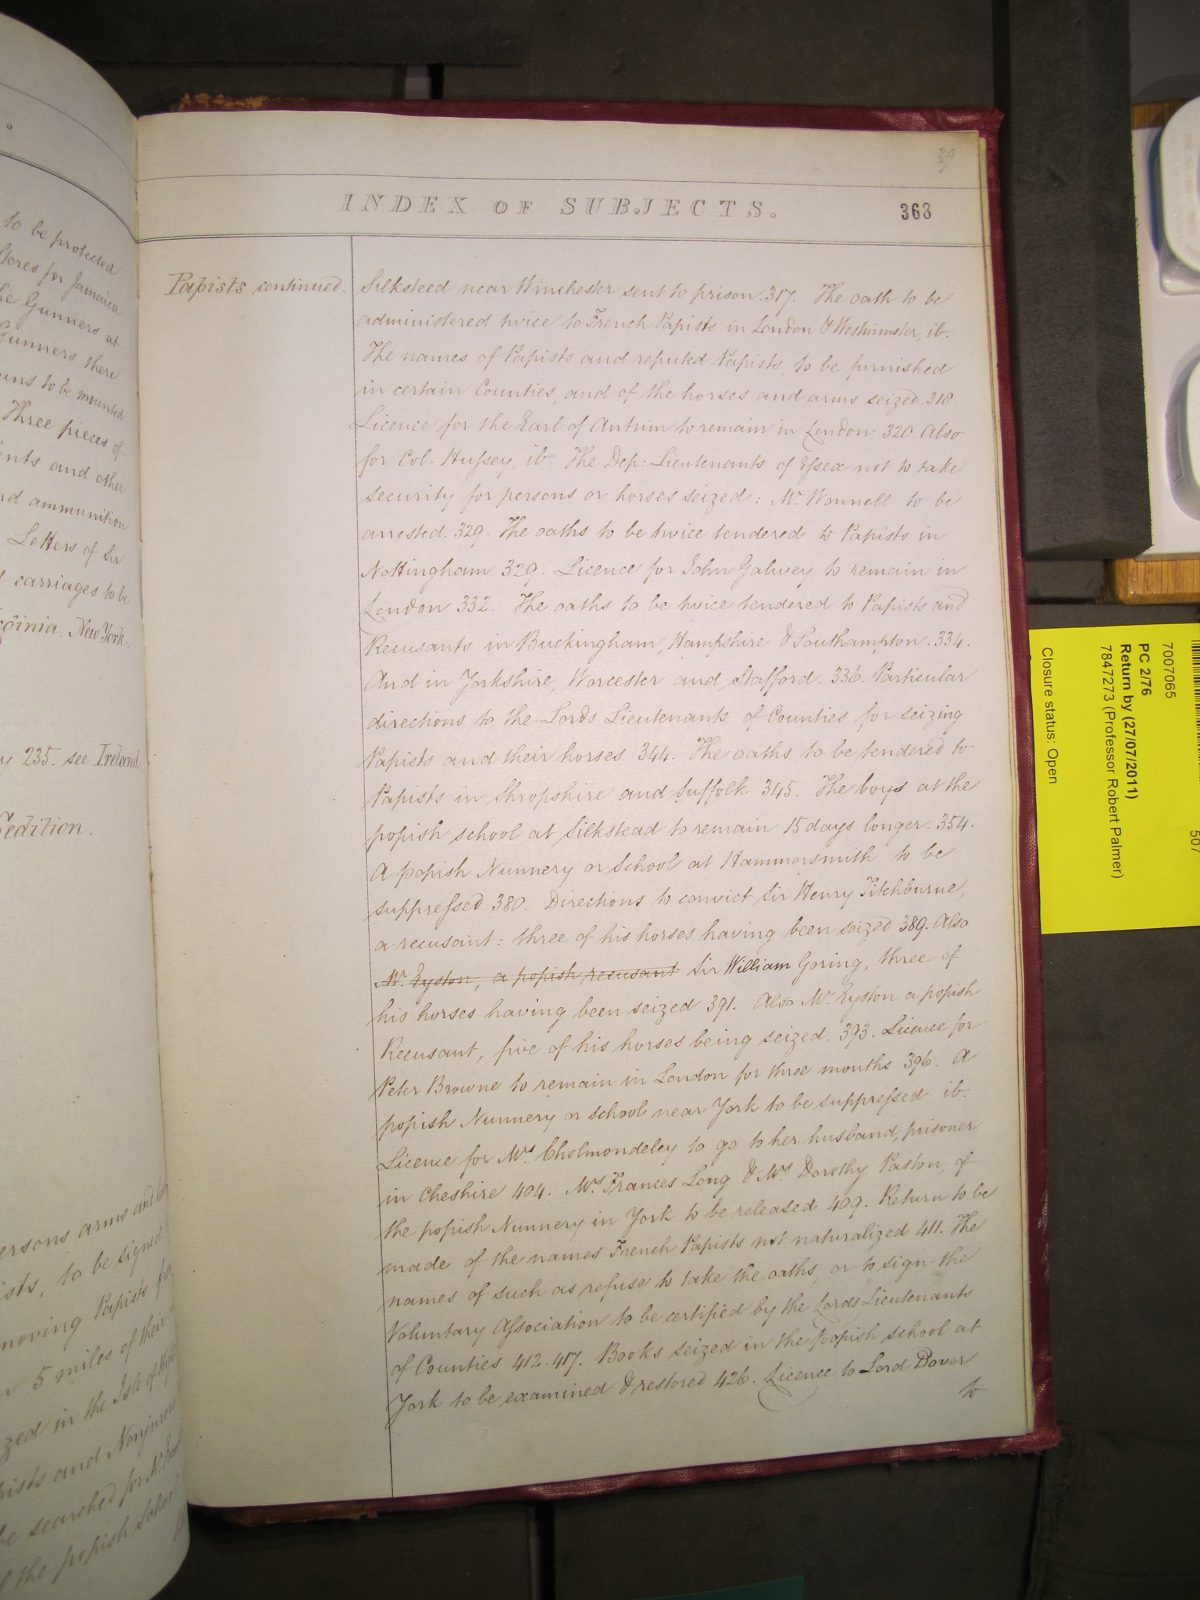 to be protected
Stores for Jamaica
Gunners at
Gunners there
to be mounted
Three pieces of
and other
ammunition
Letters of Sir
carriages to be
New York.
235. see Ireland
persons arms and
to be signed
Papists
5 miles of their
in the Isle of
and Nonjurors
be searched for Mr
the popish School
39
INDEX OF SUBJECTS.
368
Papists continued.
Silksteed near Winchester sent to prison. 317. The oath to be
administered twice to French Papists in London & Westminster, ib.
The names of Papists and reputed Papists, to be furnished
in certain Counties, and of the horses and arms seized. 318.
Licence for the Earl of Antrim to remain in London 320. Also
for Col. Hussey, ib. The Dep: Lieutenants of Essex not to take
security for persons or horses seized: Mr. Wannell to be
arrested. 329. The oaths to be twice tendered to Papists in
Nottingham 329. Licence for John Galwey to remain in
London 332. The oaths to be twice tendered to Papists and
Recusants in Buckingham, Hampshire & Southampton. 334.
And in Yorkshire, Worcester and Stafford. 336. Particular
directions to the Lords Lieutenants of Counties for seizing
Papists and their horses 344. The oaths to be tendered to
Papists in Shropshire and Suffolk 345. The boys at the
popish school at Silkstead to remain 15 days longer. 354.
A popish Nunnery or School at Hammersmith to be
suppressed 380. Directions to convict Sir Henry Titchburne,
a recusant: three of his horses having been seized 389. Also
Mr. Eyston, a popish recusant Sir William Goring, three of
his horses having been seized 391. Also Mr. Eyston a popish
Recusant, five of his horses being seized. 393. Licence for
Peter Browne to remain in London for three months 396. A
popish Nunnery or School near York to be suppressed ib.
Licence for Mrs. Cholmondeley to go to her husband, prisoner
in Cheshire 404. Mrs. Frances Long & Mrs. Dorothy Paston, of
the popish Nunnery in York to be released 409. Return to be
made of the names French Papists not naturalized 411. The
names of such as refuse to take the oaths, or to sign the
Voluntary Association to be certified by the Lords Lieutenants
of Counties 412. 417. Books seized in the popish school at
York to be examined & restored 426. Licence to Lord Dover
to
7007065
PC 2/76
Return by (27/07/2011)
7847273 (Professor Robert Palmer)
Closure status: Open
507